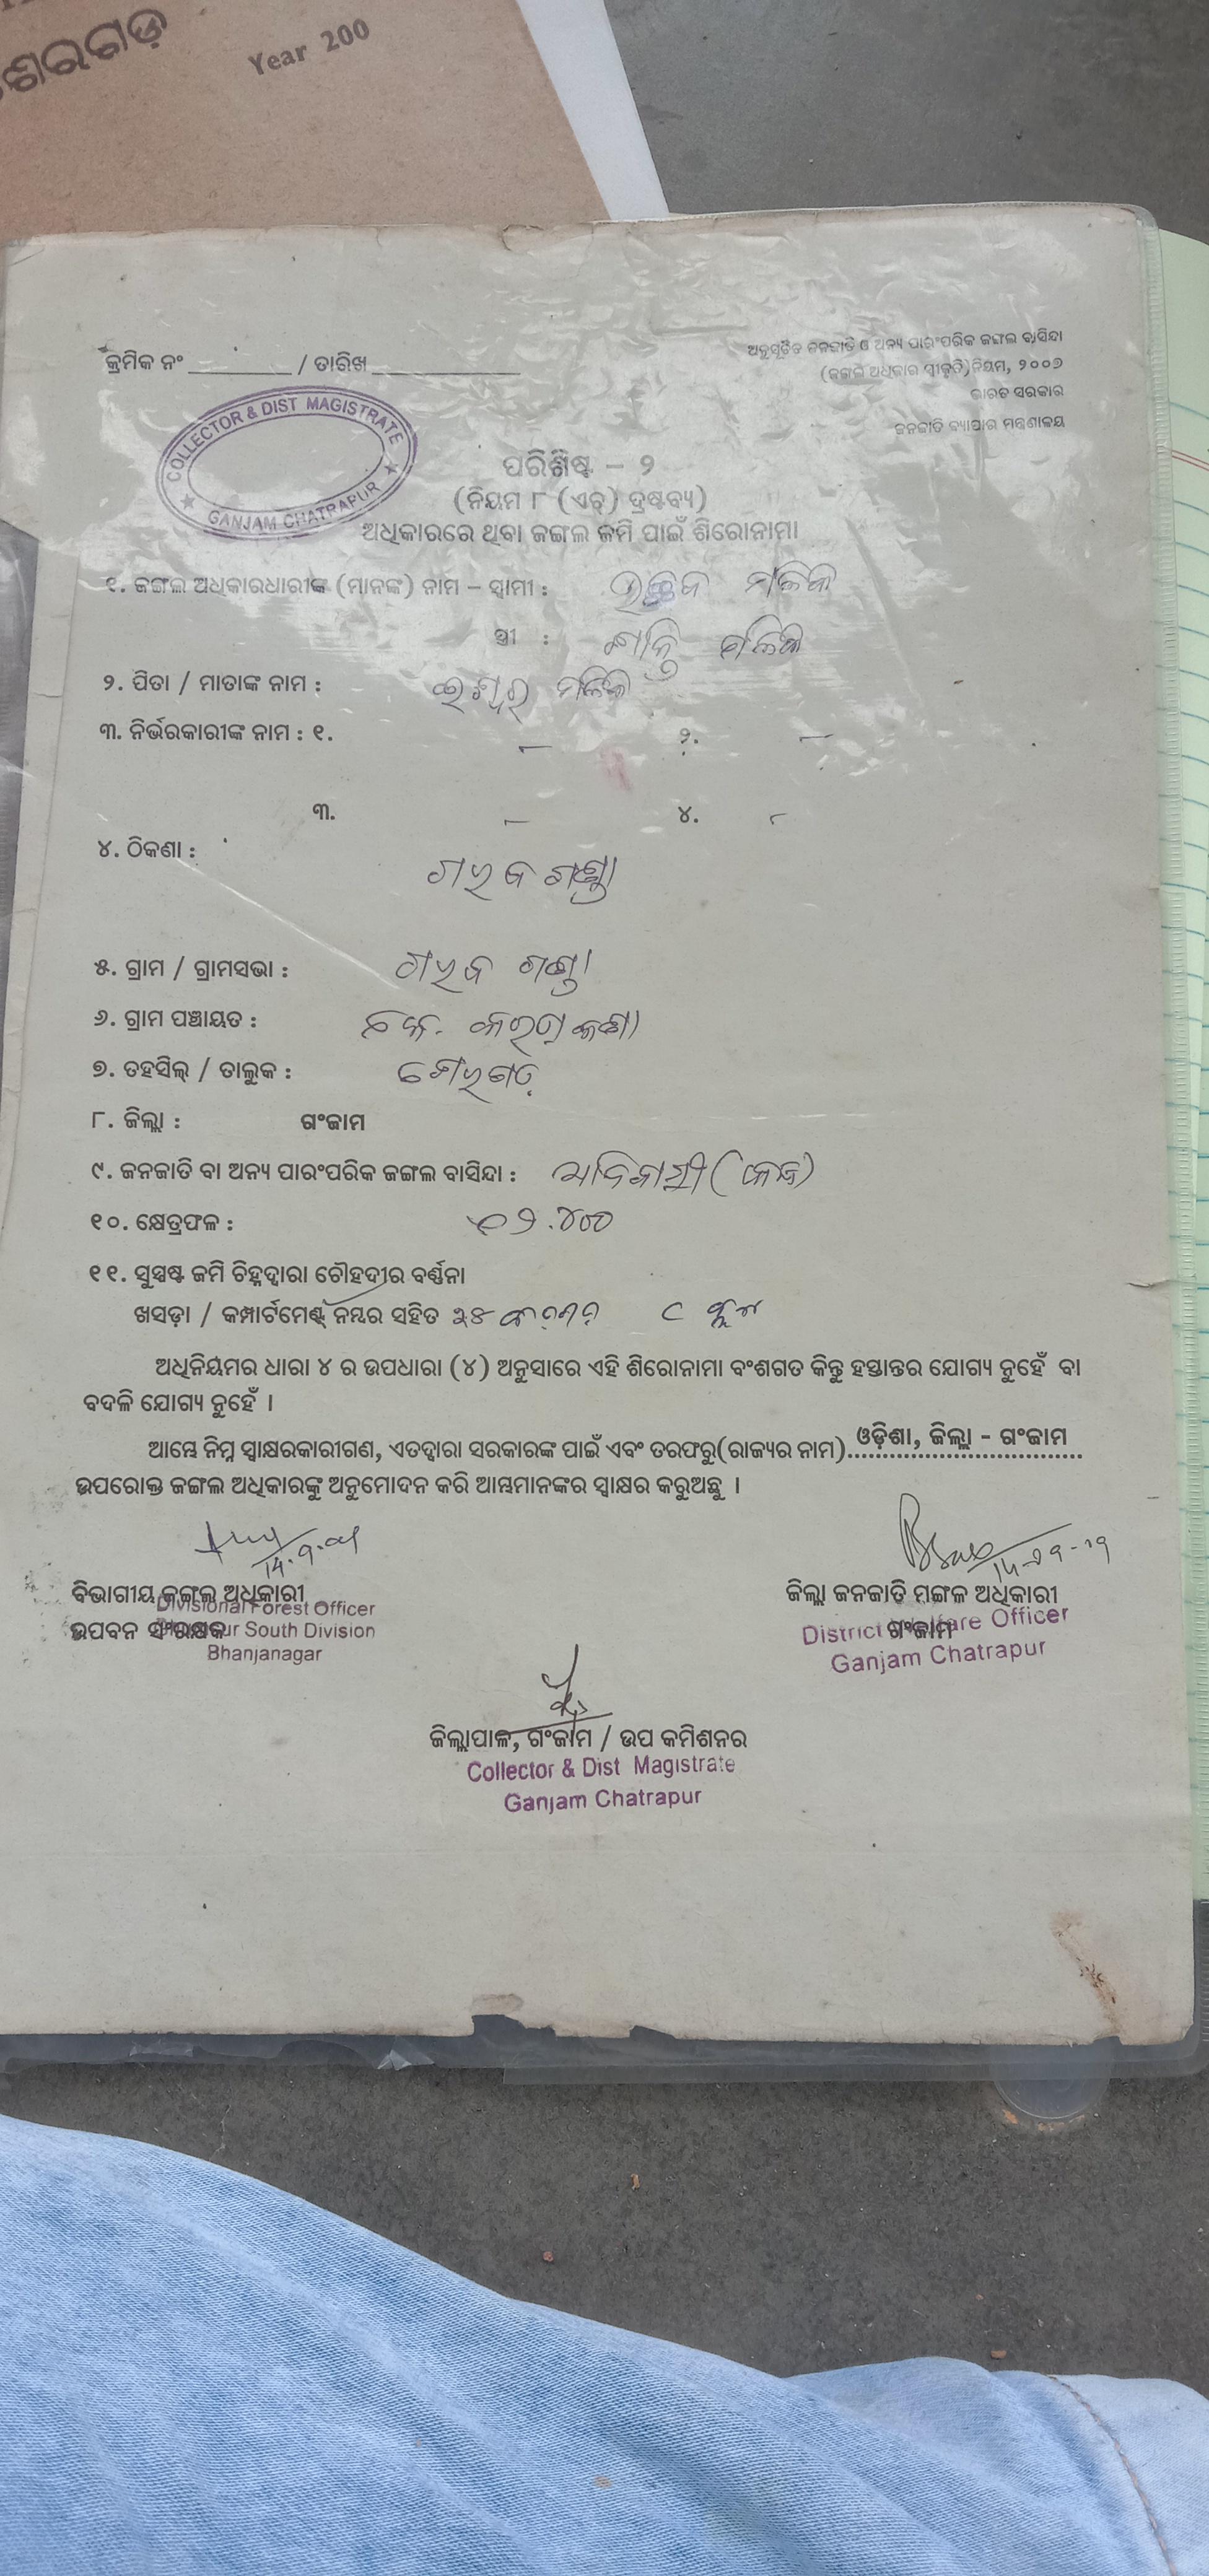 ଶେରଗଡ଼
Year 200
କ୍ରମିକ ନଂ ________ / ତାରିଖ ____________
ଅନୁସୂଚିତ ଜନଜାତି ଓ ଅନ୍ୟ ପାରଂପରିକ ଜଙ୍ଗଲ ବାସିନ୍ଦା
(ଜଙ୍ଗଲ ଅଧିକାର ସ୍ୱୀକୃତି) ନିୟମ, ୨୦୦୭
ଭାରତ ସରକାର
ଜନଜାତି ବ୍ୟାପାର ମନ୍ତ୍ରଣାଳୟ
COLLECTOR & DIST MAGISTRATE
GANJAM CHATRAPUR
ପରିଶିଷ୍ଟ – ୨
(ନିୟମ ୮ (ଏଚ୍) ଦ୍ରଷ୍ଟବ୍ୟ)
ଅଧିକାରରେ ଥିବା ଜଙ୍ଗଲ ଜମି ପାଇଁ ଶିରୋନାମା
୧. ଜଙ୍ଗଲ ଅଧିକାରଧାରୀଙ୍କ (ମାନଙ୍କ) ନାମ – ସ୍ୱାମୀ : ମଳିକ
ସ୍ତ୍ରୀ : ଶାନ୍ତି ମଳିକ
୨. ପିତା / ମାତାଙ୍କ ନାମ : ଇଶ୍ୱର ମଳିକ
୩. ନିର୍ଭରକାରୀଙ୍କ ନାମ : ୧. – ୨. –
୩. – ୪. –
୪. ଠିକଣା :
୫. ଗ୍ରାମ / ଗ୍ରାମସଭା :
୬. ଗ୍ରାମ ପଞ୍ଚାୟତ :
୭. ତହସିଲ୍ / ତାଲୁକ : ଶେରଗଡ଼
୮. ଜିଲ୍ଲା : ଗଂଜାମ
୯. ଜନଜାତି ବା ଅନ୍ୟ ପାରଂପରିକ ଜଙ୍ଗଲ ବାସିନ୍ଦା : ଆଦିବାସୀ (କନ୍ଧ)
୧୦. କ୍ଷେତ୍ରଫଳ :
୧୧. ସୁସ୍ପଷ୍ଟ ଜମି ଚିହ୍ନଦ୍ୱାରା ଚୌହଦୀର ବର୍ଣ୍ଣନା
ଖସଡ଼ା / କମ୍ପାର୍ଟମେଣ୍ଟ ନମ୍ବର ସହିତ
ଅଧିନିୟମର ଧାରା ୪ ର ଉପଧାରା (୪) ଅନୁସାରେ ଏହି ଶିରୋନାମା ବଂଶଗତ କିନ୍ତୁ ହସ୍ତାନ୍ତର ଯୋଗ୍ୟ ନୁହେଁ ବା
ବଦଳି ଯୋଗ୍ୟ ନୁହେଁ ।
ଆମ୍ଭେ ନିମ୍ନ ସ୍ୱାକ୍ଷରକାରୀଗଣ, ଏତଦ୍ୱାରା ସରକାରଙ୍କ ପାଇଁ ଏବଂ ତରଫରୁ (ରାଜ୍ୟର ନାମ) ଓଡ଼ିଶା, ଜିଲ୍ଲା - ଗଂଜାମ
ଉପରୋକ୍ତ ଜଙ୍ଗଲ ଅଧିକାରଙ୍କୁ ଅନୁମୋଦନ କରି ଆମ୍ଭମାନଙ୍କର ସ୍ୱାକ୍ଷର କରୁଅଛୁ ।
ବିଭାଗୀୟ ଜଙ୍ଗଲ ଅଧିକାରୀ
Divisional Forest Officer
ଉପବନ ସଂରକ୍ଷକ
South Division
Bhanjanagar
ଜିଲ୍ଲା ଜନଜାତି ମଙ୍ଗଳ ଅଧିକାରୀ
ଗଂଜାମ
District Welfare Officer
Ganjam Chatrapur
ଜିଲ୍ଲାପାଳ, ଗଂଜାମ / ଉପ କମିଶନର
Collector & Dist Magistrate
Ganjam Chatrapur